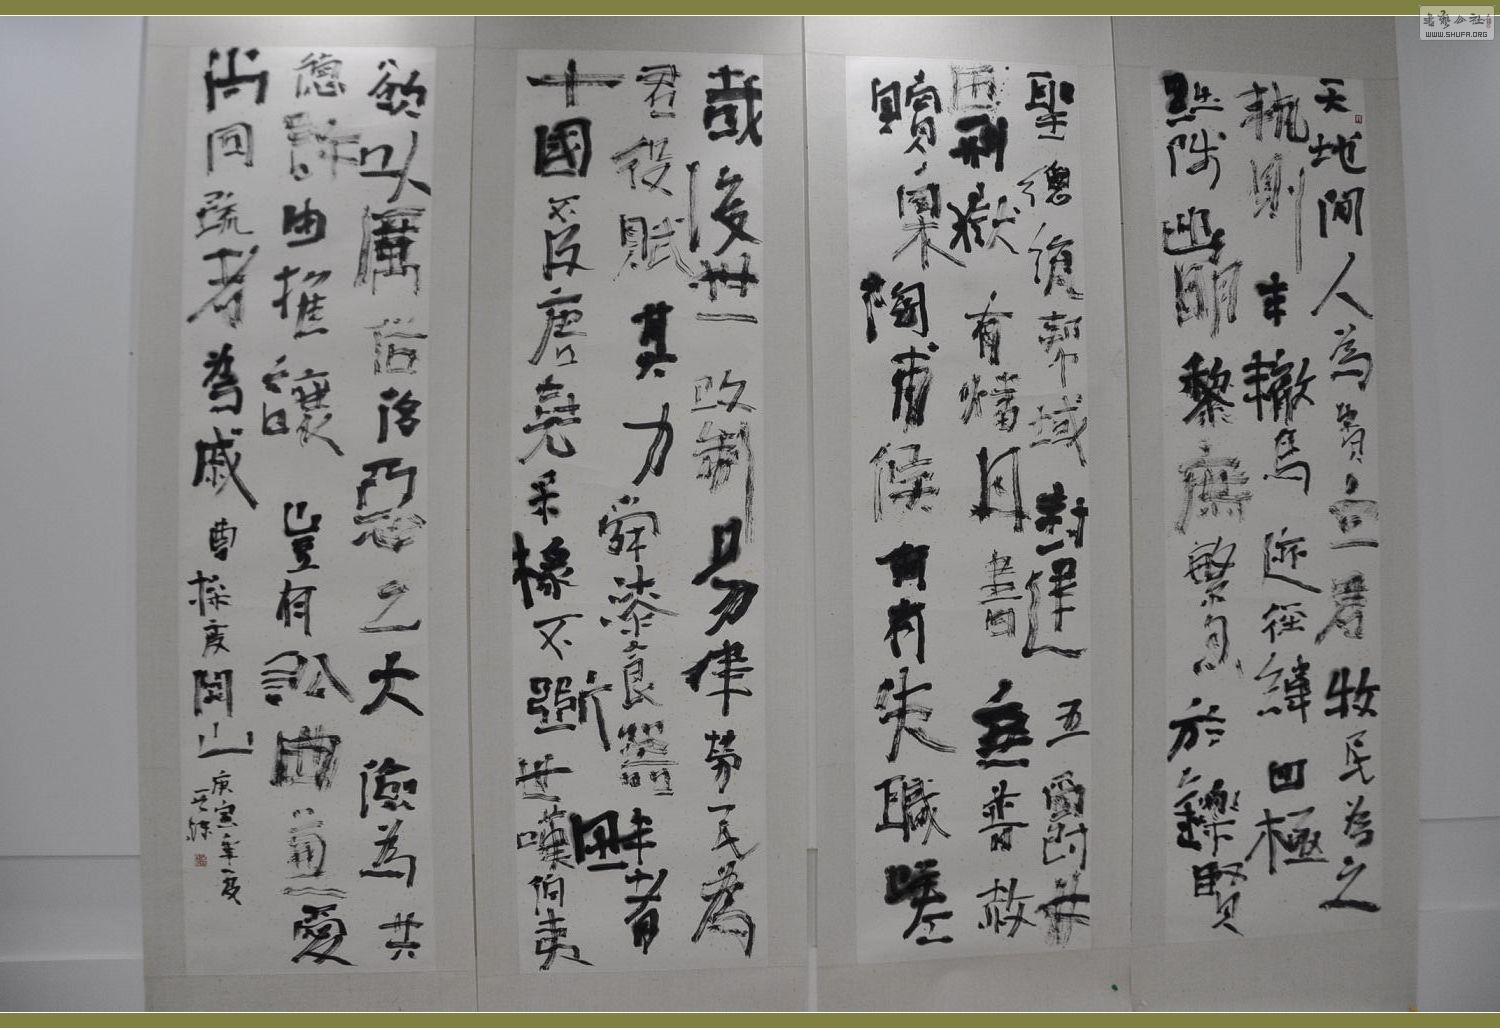 天地間人為貴立君牧民為之
軌則車轍馬迹經緯四極
黜陟幽明黎庶繁息於鑠賢
聖總統邦域封建五爵井
田刑獄有燔丹書無普赦
贖皋陶甫侯何有失職嗟
哉後世改制易律勞民為
君役賦其力舜漆食器畔者
十國不及唐堯采椽不斲世嘆伯夷
欲以厲俗侈惡之大儉為共
德許由推讓豈有訟曲兼愛
尚同疏者為戚曹操度關山
庚寅年夜
書藝公社
WWW.SHUFA.ORG